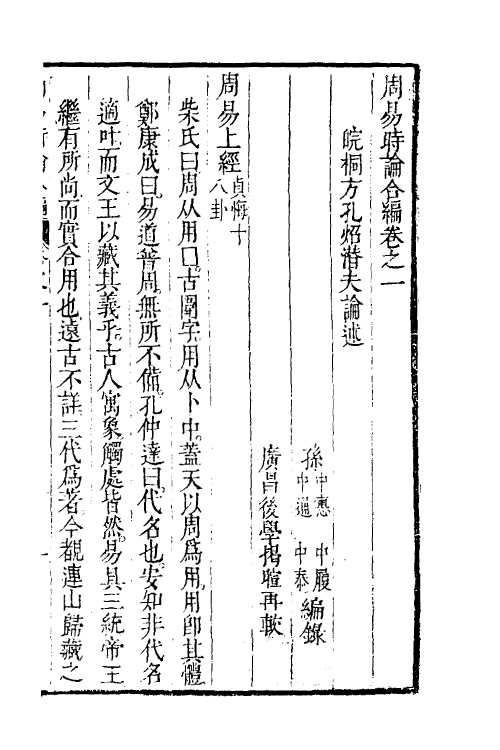 周易時論合編卷之一
皖桐方孔炤潛夫論述
孫中德 中履
中通 中泰 編錄
廣昌後學揭暄再較
周易上經貞悔十八卦
柴氏曰周从用口古圍字用从卜中蓋天以周爲用用卽其體
鄭康成曰易道普周無所不備孔仲達曰代名也安知非代名
適叶而文王以藏其義乎古人寓象觸處皆然易其三統帝王
繼有所尚而實合用也遠古不詳三代爲著今觀連山歸藏之